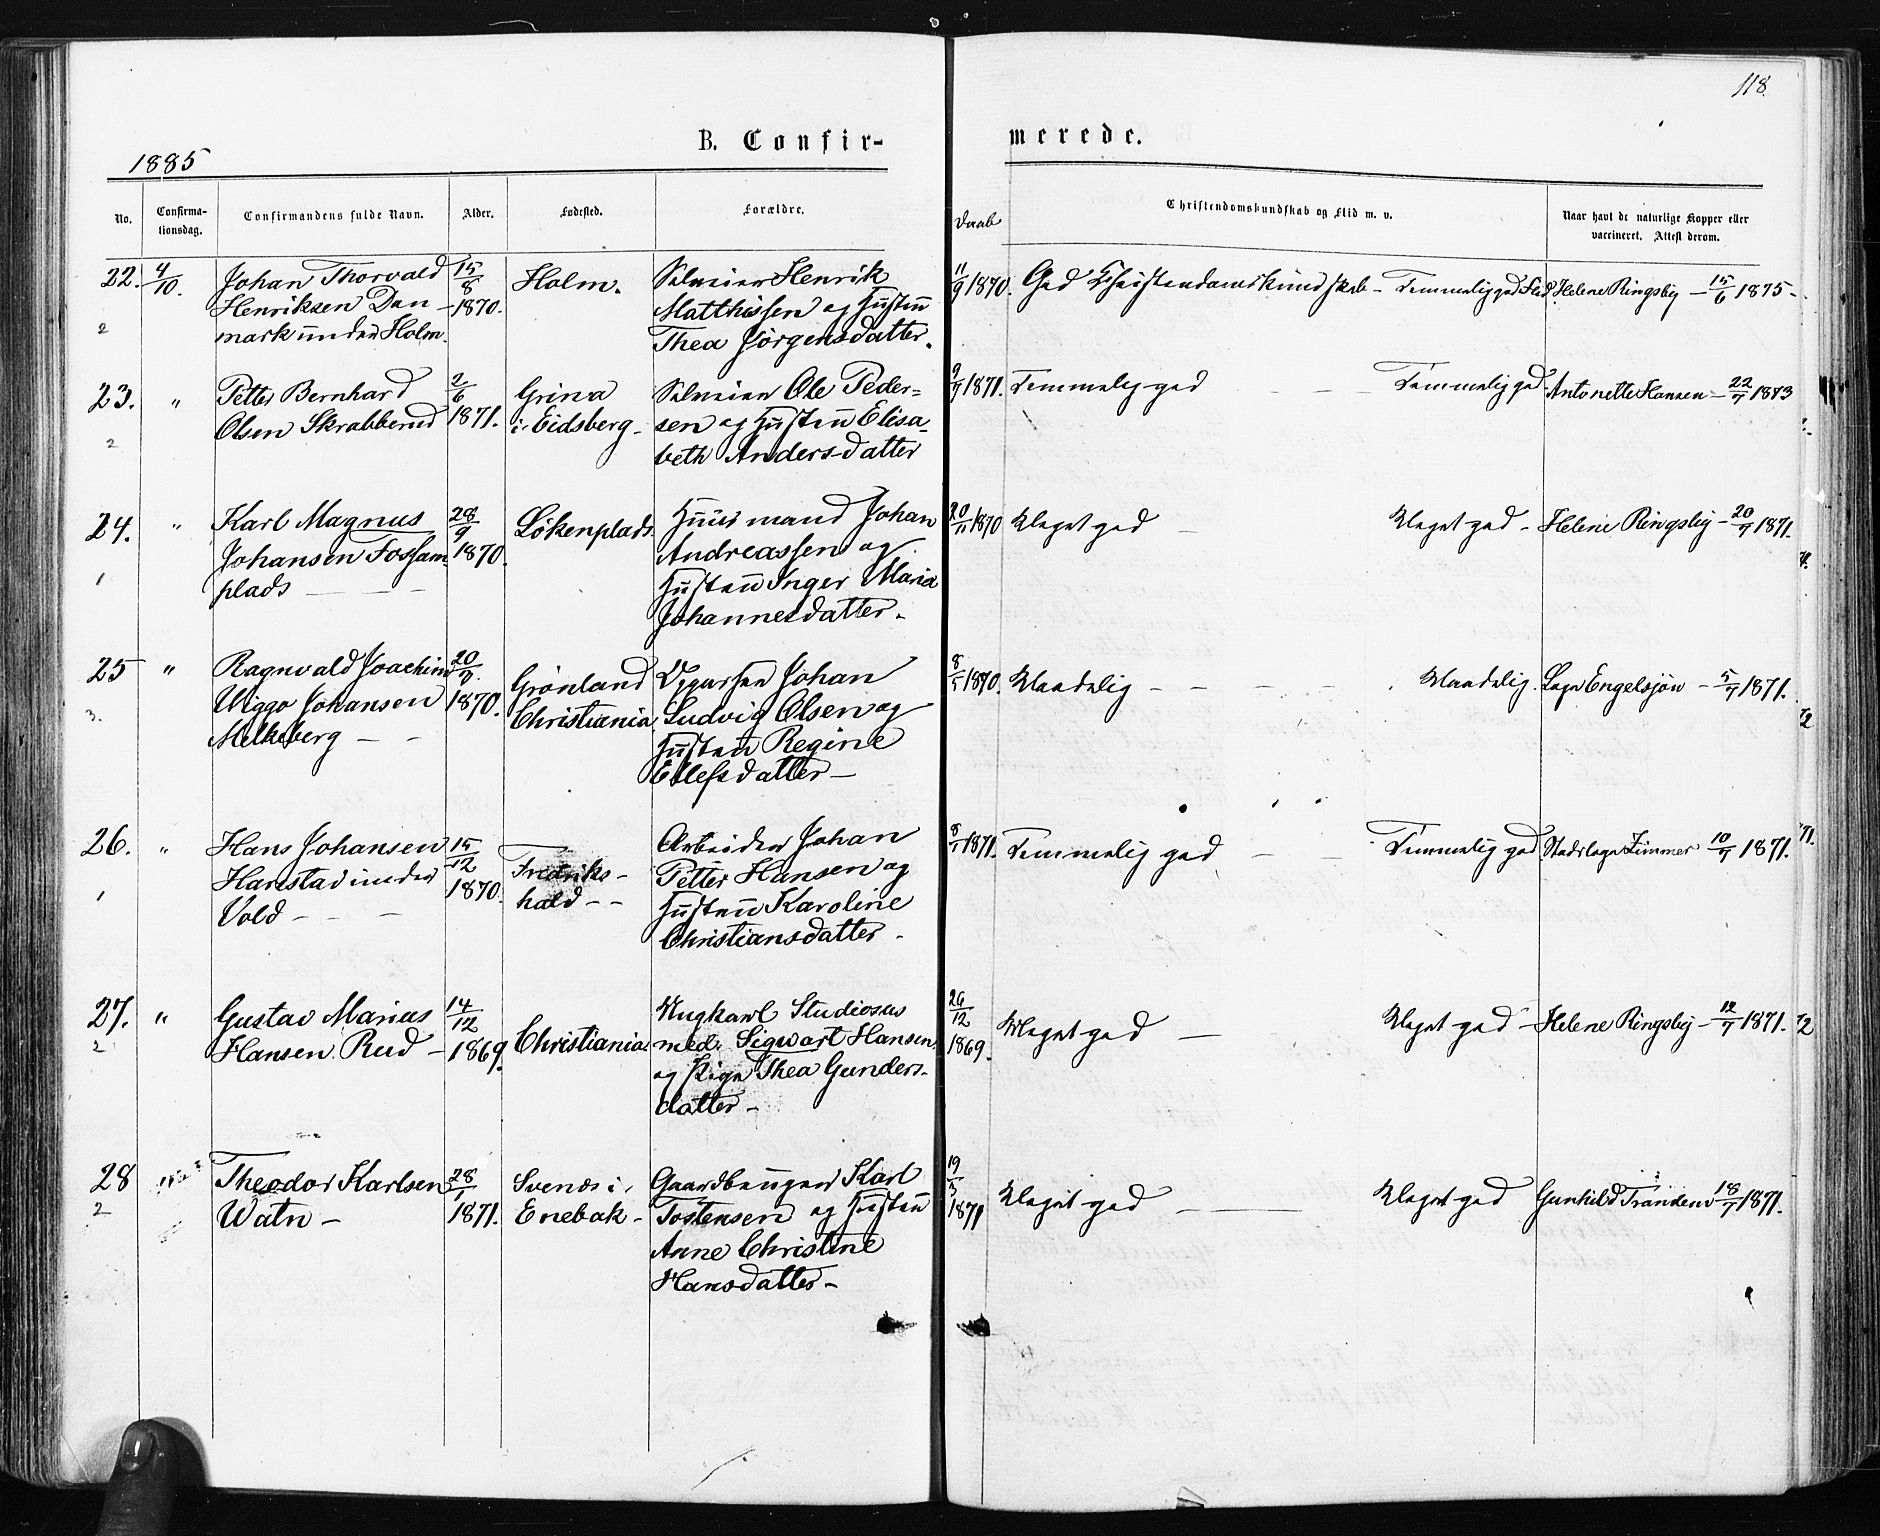 118.
B. Confir-
merede.
1885
No.
Confirma-
tionsdag.
Confirmandens fulde Navn.
Alder.
Fødested.
Forældre.
Daab
Christendomskundskab og Flid m. v.
Naar havt de naturlige Kopper eller
vaccineret. Attest derom.
22. 4/10. Johan Thorvald 15/8 Holm. Selveier Henrik 11/9 1870. God Christendomskundskab - Temmelig god Flid. Helene Ringsby - 15/6 1875 -
Henriksen Dan - 1870. Matthissen og Hustru
2 mark under Holm. Thea Jørgensdatter.
23. " Petter Bernhard 2/6 Grina Selveier Ole Peder= 9/7 1871. Temmelig god Temmelig god. Antonette Hansen - 22/7 1873
Olsen Skrabberud 1871. i Eidsberg - sen og Hustru Elisa-
2 beth Andersdatter
24. " Karl Magnus 28/9 Lökenplads. Huusmand Johan 20/11 1870 Meget god Meget god - Helene Ringsby - 20/7 1871.
Johansen Fossum 1870. Andreassen og
1 plads Hustru Inger Maria
Johannesdatter.
25 " Ragnvald Joachim 20/3 Grönland Johan 8/5 1870. Maadelig Maadelig. Læge Engelsjøn - 5/7 1871.
Wiggo Johansen 1870. Christiania Ludvig Olsen og
3. Melkeberg Hustru Regine
Ellefsdatter -
26. " Hans Johansen 15/12 Fredriks- Arbeider Johan 8/1 1871. Temmelig god Temmelig god Stadslæge Zimmer 10/7 1871.
Harestad under 1870. hald - Petter Hansen og
1 Vold - Hustru Karoline
Christiansdatter -
27. " Gustav Marius 14/12 Christiania. Ungkarl Studiosus 26/12 Meget god Meget god - Helene Ringsby - 12/7 1871.
2 Hansen Rud - 1869. med. Sigwart Hansen 1869.
og Pige Thea Gunders-
datter -
28 Theodor Karlsen 28/1 Svends i Gaardbruger Karl 19/3 Meget god Meget god Gunhild Tranden 18/7 1871.
2 Watn - 1871. Enebak - Tostensen og Hustru 1871
Anne Christine
Hansdatter -